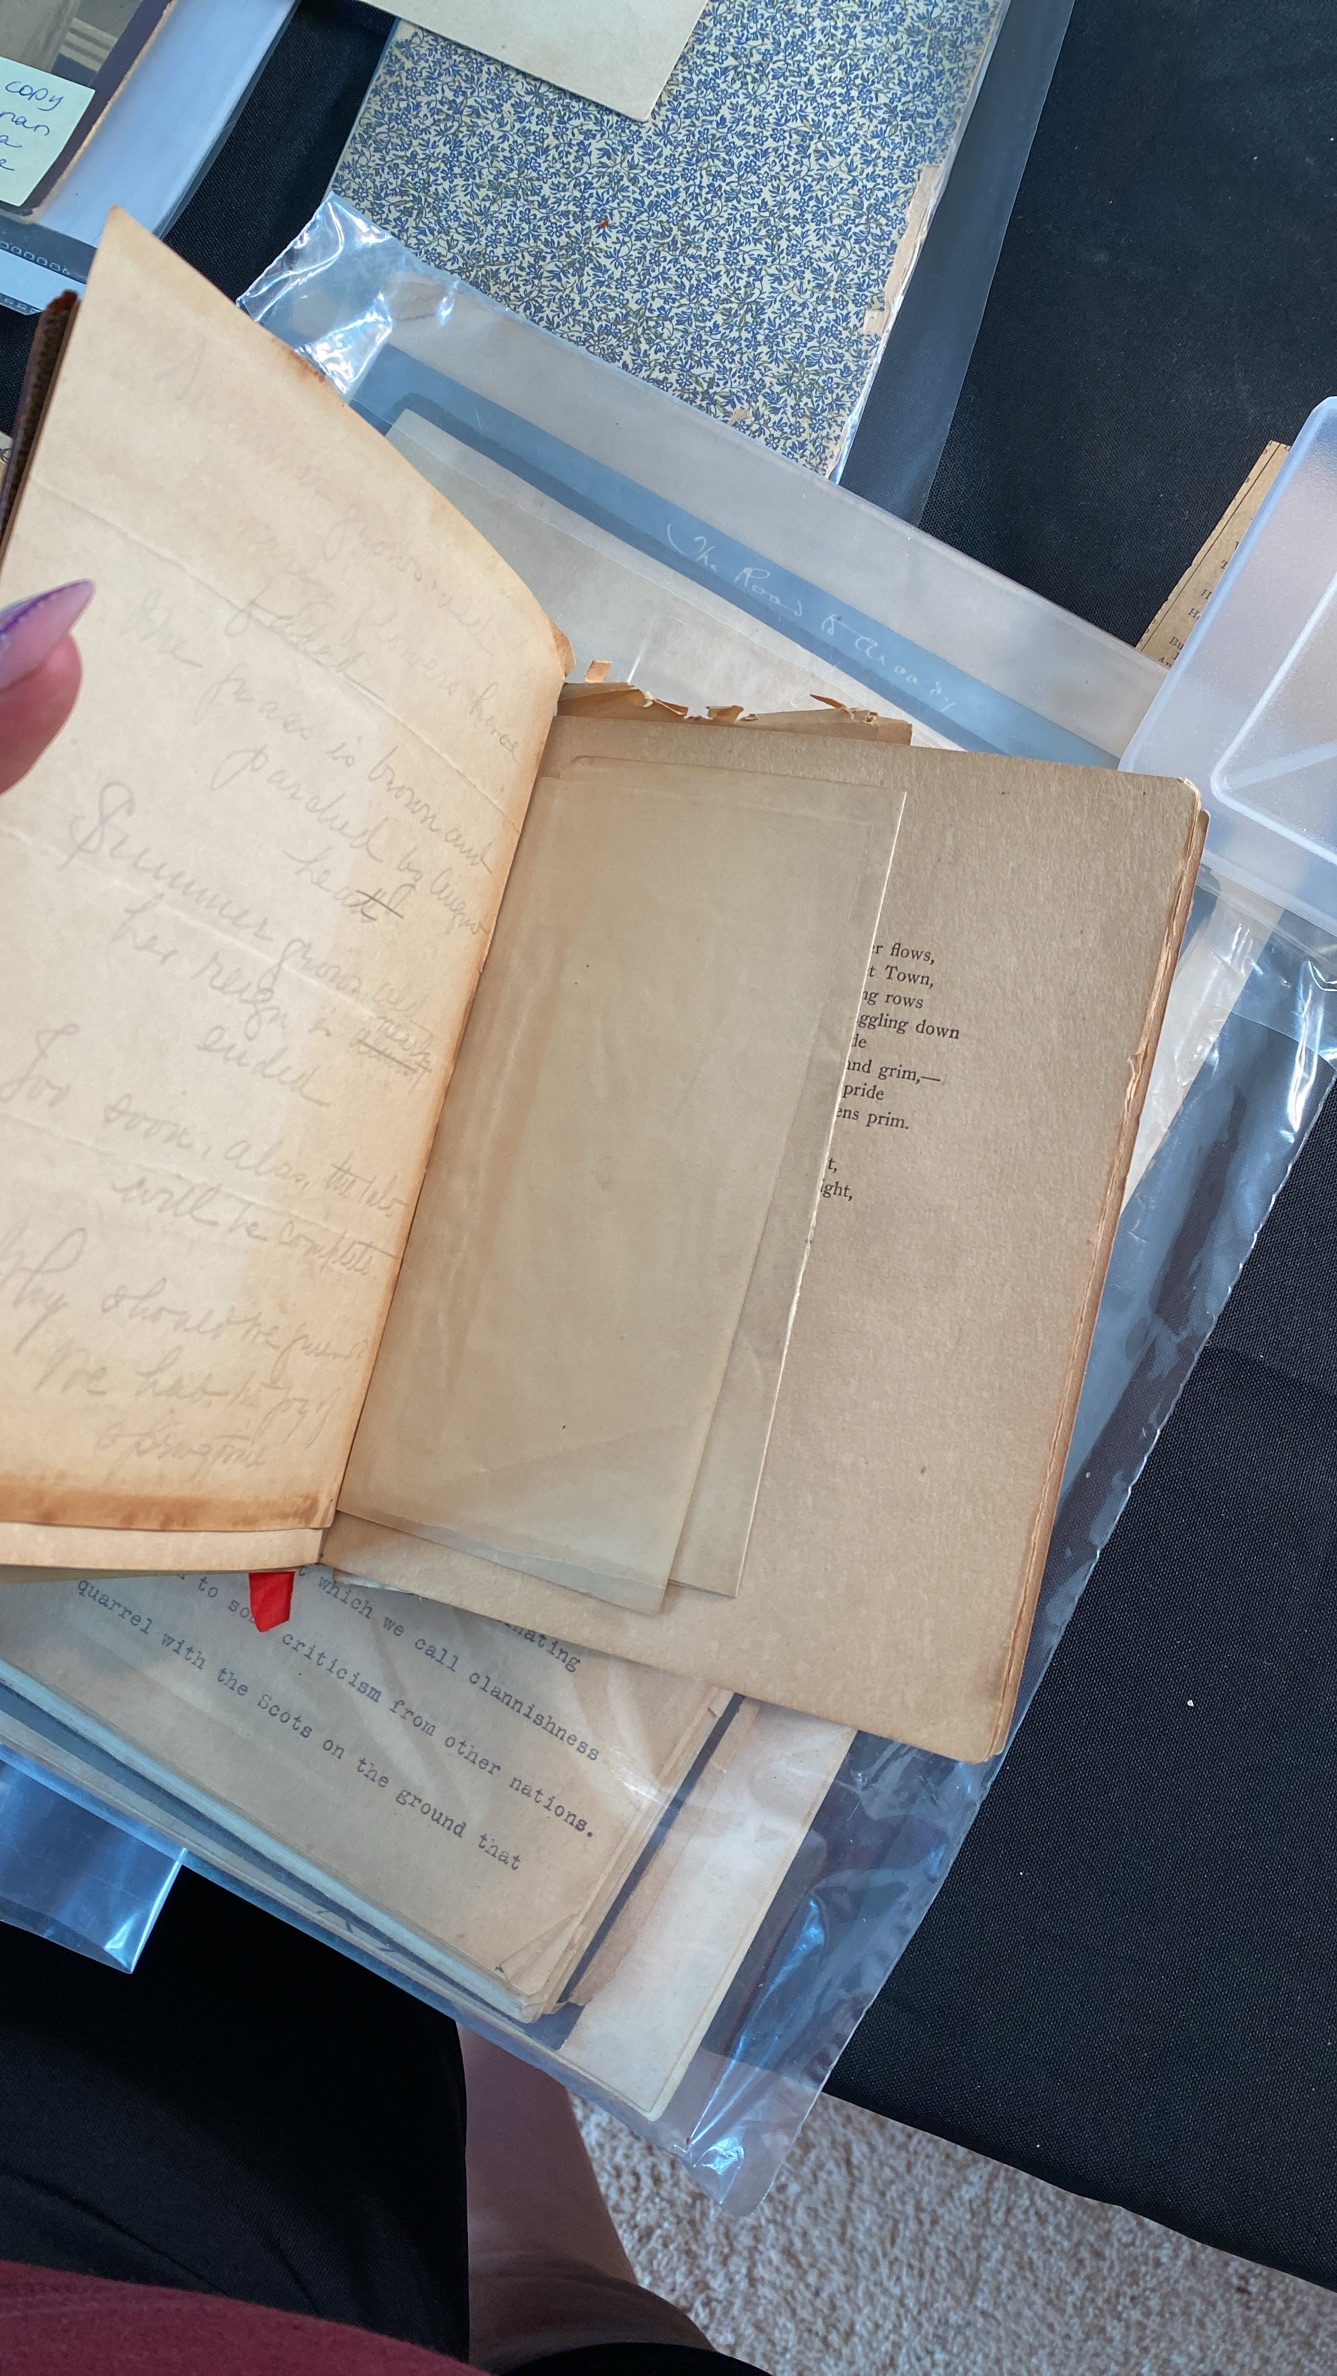 copy
The Road to Arcady
Summer grows old
and flowers have
faded
The grass is brown and
parched by August
heat
Summer grows old
her reign is nearly
ended
Too soon, alas, the
will be complete.
Why should we
We had the joy of
springtime
er flows,
t Town,
ng rows
ggling down
de
and grim,—
pride
ens prim.
t,
ight,
nating
t which we call clannishness
to so criticism from other nations.
quarrel with the Scots on the ground that